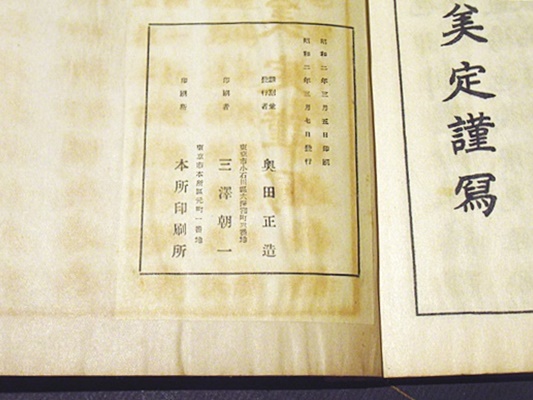 美定謹冩
昭和二年三月五日印刷
昭和二年三月七日發行
編輯兼
發行者 奥田正造
東京市小石川區大塚窪町 番地
印刷者 三澤朝一
東京市本所區元町一番地
印刷所 本所印刷所